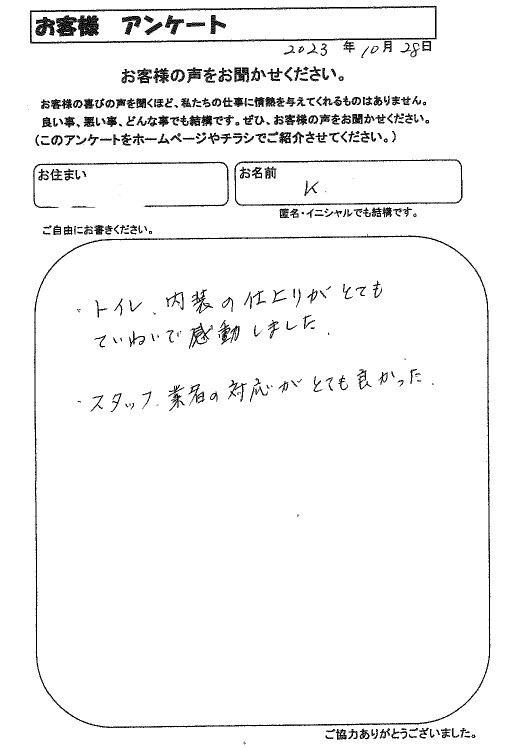 お客様 アンケート
2023 年 10 月 28 日
お客様の声をお聞かせください。
お客様の喜びの声を聞くほど、私たちの仕事に情熱を与えてくれるものはありません。
良い事、悪い事、どんな事でも結構です。ぜひ、お客様の声をお聞かせください。
（このアンケートをホームページやチラシでご紹介させてください。）
お住まい
お名前
K.
匿名・イニシャルでも結構です。
ご自由にお書きください。
・トイレ、内装の仕上りがとても
ていねいで感動しました。
・スタッフ、業者の対応がとても良かった。
ご協力ありがとうございました。